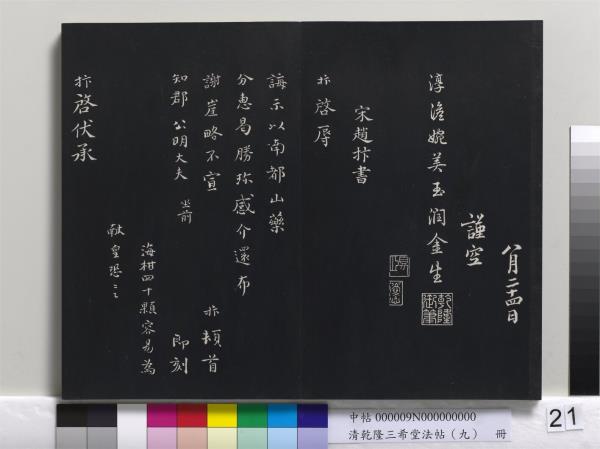 八月二十四日
謹空
淳澹婉美玉潤金生
乾隆御筆
宋趙抃書
抃啓辱
誨示以南都山藥
分惠曷勝珍感介還布
謝崖略不宣 抃頓首
知郡公明大夫 坐前 即刻
海柑四十顆容易為
献皇恐〻
抃啓伏承
中帖 000009N000000000
清乾隆三希堂法帖（九） 冊
21